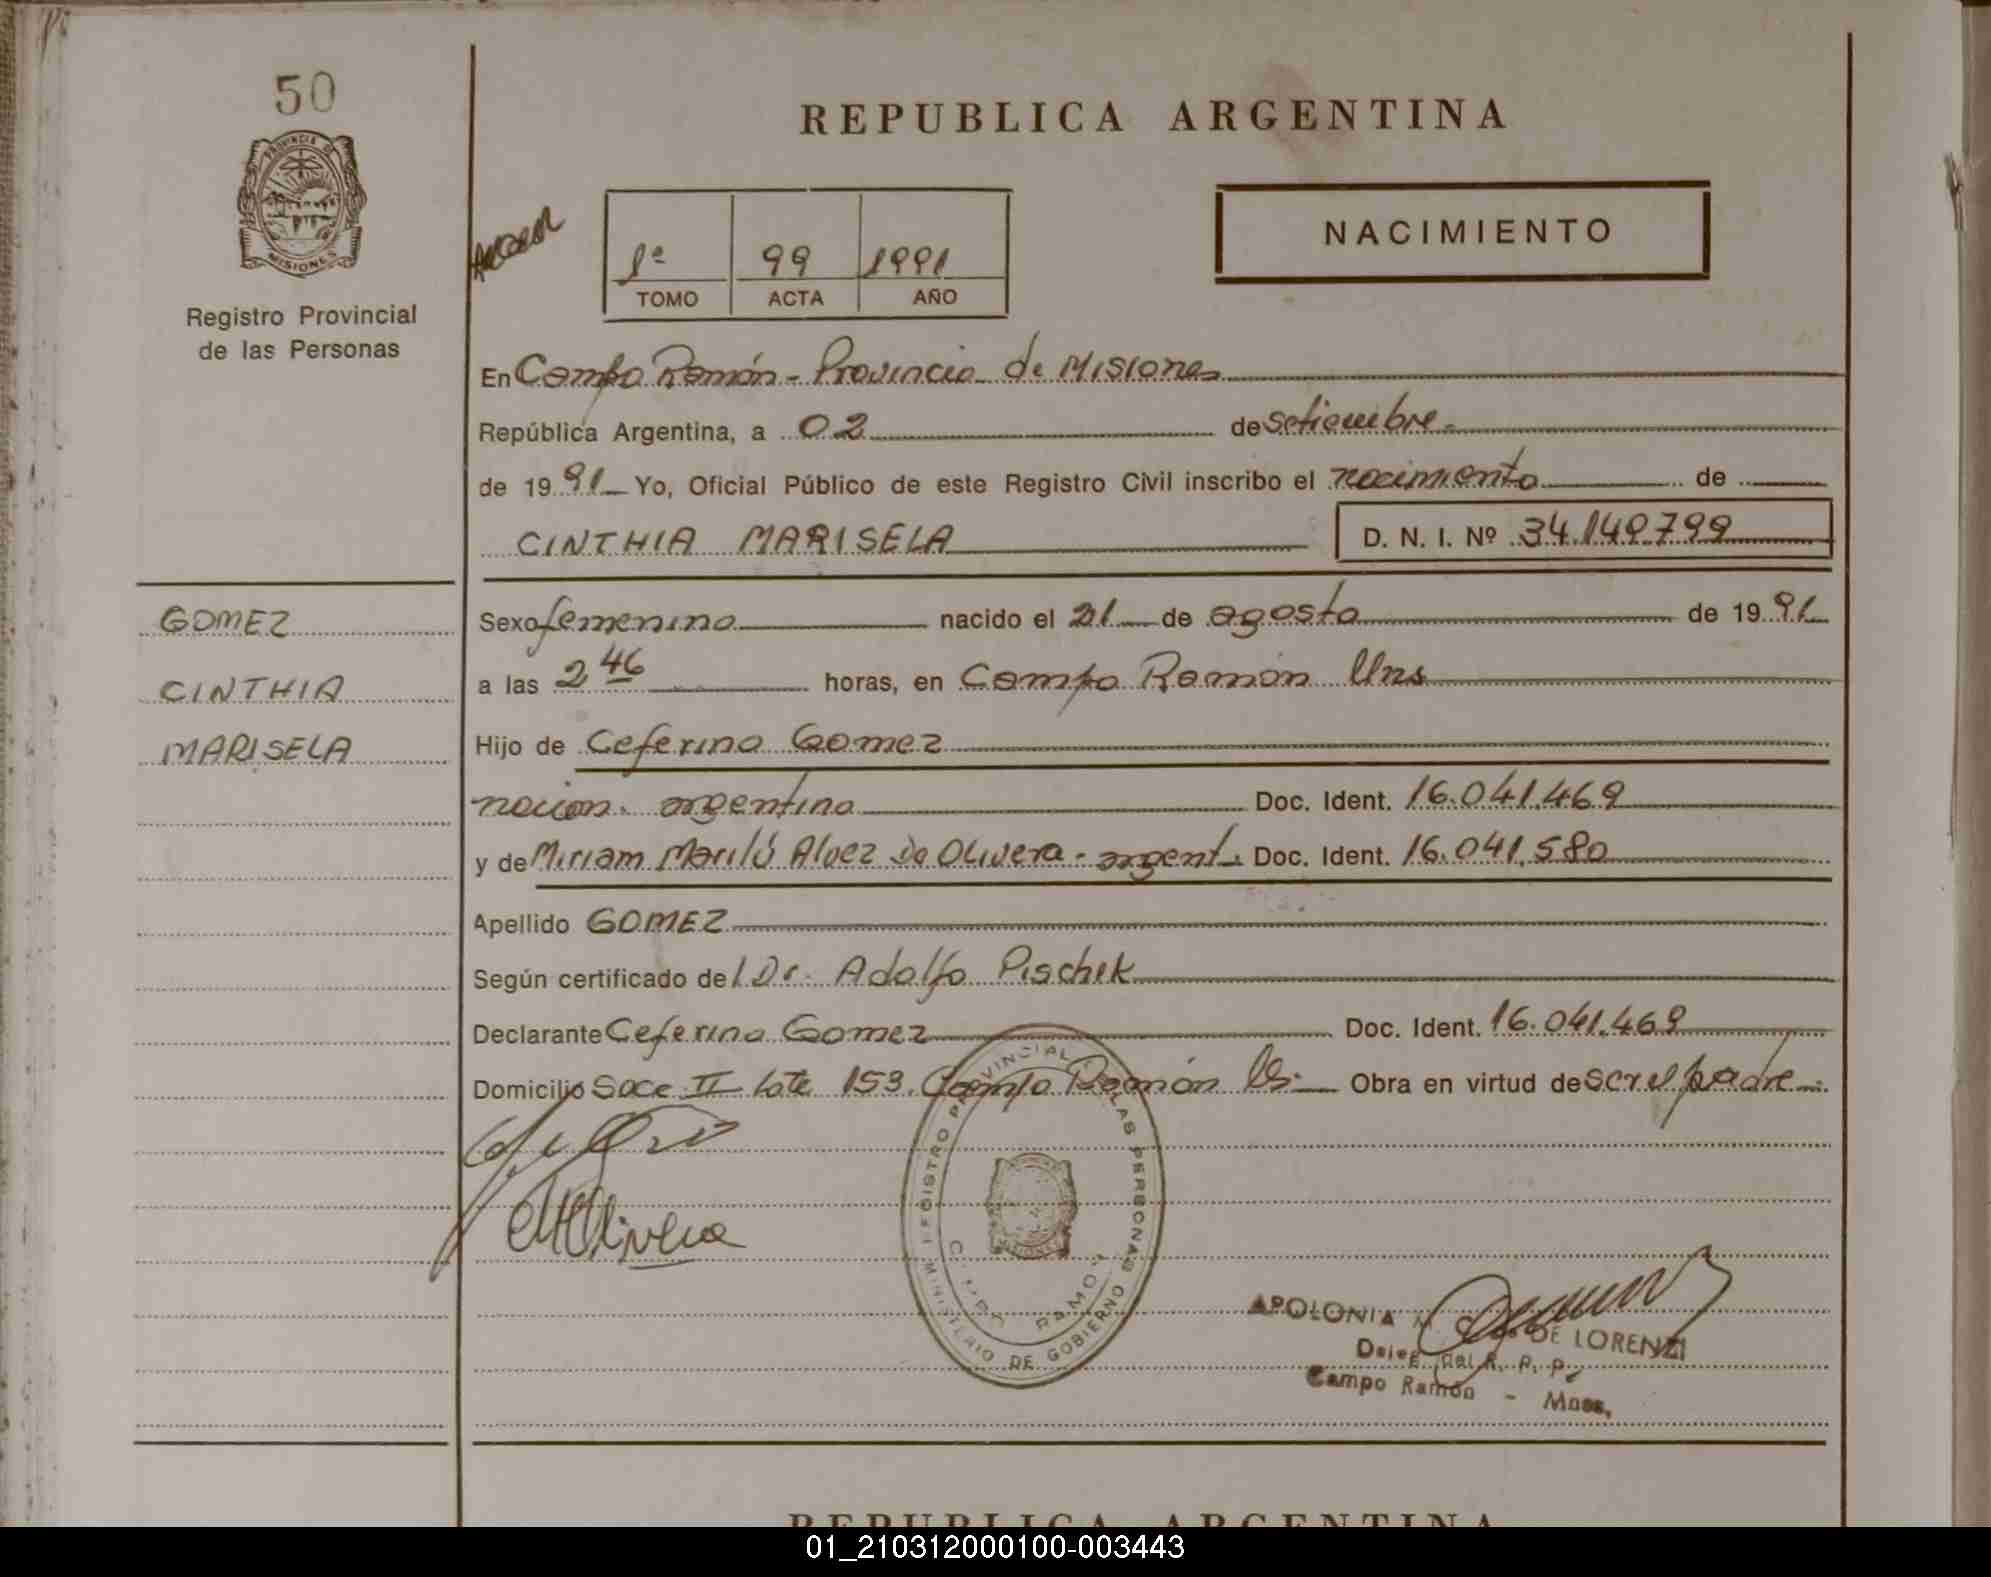 50
PROVINCIA DE
MISIONES
Registro Provincial
de las Personas
GOMEZ
CINTHIA
MARISELA
REPUBLICA ARGENTINA
1º 99 1991
TOMO ACTA AÑO
NACIMIENTO
En Campo Ramón - Provincia de Misiones
República Argentina, a 02 de setiembre
de 1991 Yo, Oficial Público de este Registro Civil inscribo el nacimiento de
CINTHIA MARISELA D. N. I. Nº 34.149.799
Sexo femenino nacido el 21 de agosto de 1991
a las 2 46 horas, en Campo Ramón
Hijo de Ceferino Gomez
nacion. argentina Doc. Ident. 16.041.469
y de Miriam Marilú Alvez De Olivera - argent. Doc. Ident. 16.041.580
Apellido GOMEZ
Según certificado del Dr. Adolfo Pischek
Declarante Ceferino Gomez Doc. Ident. 16.041.469
Domicilio Secc II Lote 153. Campo Ramón Obra en virtud de ser el padre
REGISTRO PROVINCIAL DE LAS PERSONAS
MINISTERIO DE GOBIERNO
CAMPO RAMON
MOlivera
APOLONIA M. DE LORENZI
Deleg. del R. P. P.
Campo Ramón - Mnes.
REPUBLICA ARGENTINA
01_210312000100-003443